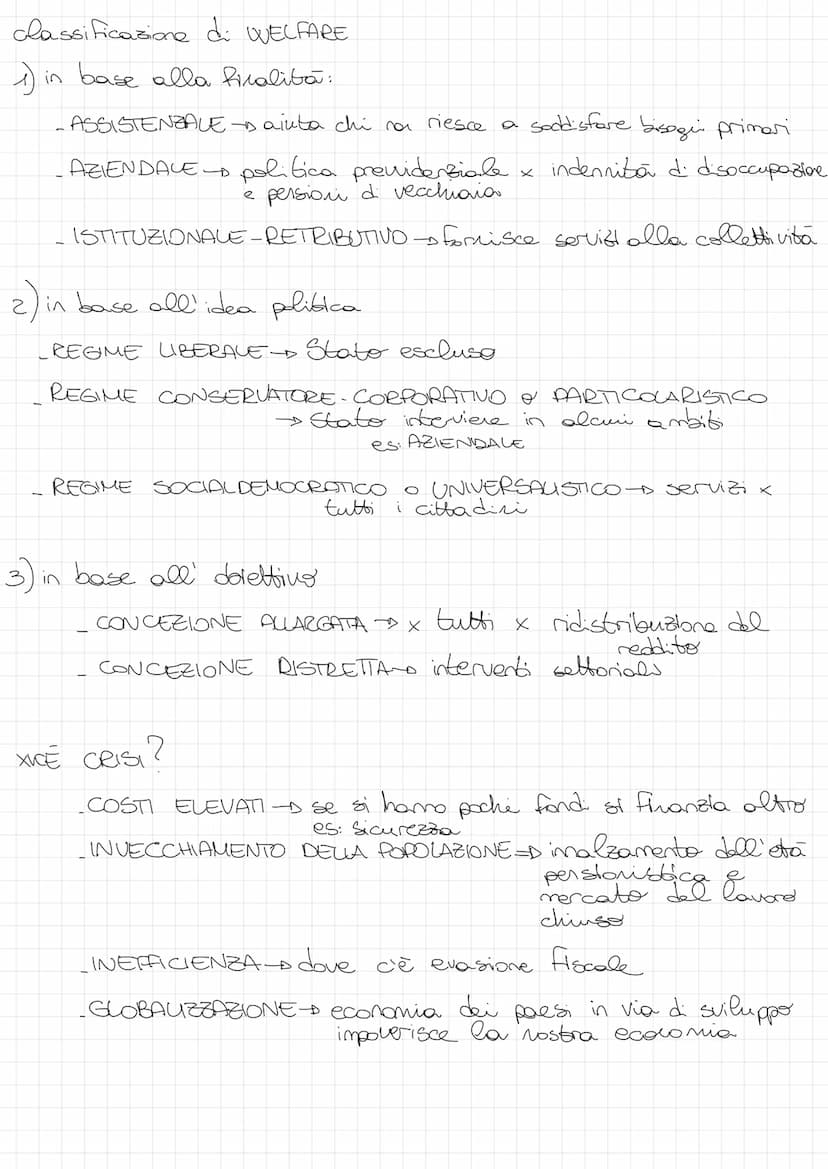 classificazione di WELFARE
1) in base alla finalità:
- ASSISTENZIALE → aiuta chi non riesce a soddisfare bisogni primari
- AZIENDALE → politica previdenziale x indennità di disoccupazione
e pensioni di vecchiaia
- ISTITUZIONALE-RETRIBUTIVO → fornisce servizi alla collettività
2) in base all'idea politica
- REGIME LIBERALE → Stato escluso
- REGIME CONSERVATORE-CORPORATIVO o PARTICOLARISTICO
→ Stato interviene in alcuni ambiti
es: AZIENDALE
- REGIME SOCIALDEMOCRATICO o UNIVERSALISTICO → servizi x
tutti i cittadini
3) in base all'obiettivo
- CONCEZIONE ALLARGATA → x tutti x ridistribuzione del
reddito
- CONCEZIONE RISTRETTA → interventi settoriali
XVCÈ CRISI?
- COSTI ELEVATI → se si hanno pochi fondi si finanzia altro
es: sicurezza
- INVECCHIAMENTO DELLA POPOLAZIONE => innalzamento dell'età
pensionistica e
mercato del lavoro
chiuso
- INEFFICIENZA → dove c'è evasione fiscale
- GLOBALIZZAZIONE → economia dei paesi in via di sviluppo
impoverisce la nostra economia